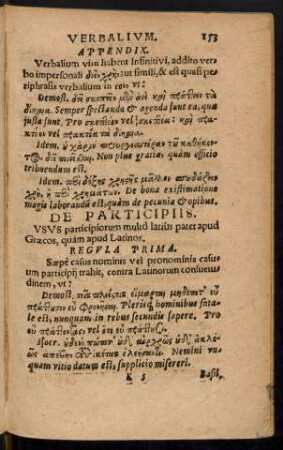 VERBALIVM. 153
APPENDIX.
Verbalium vim habent Infinitivi, addito ver
bo impersonali δεῖ, χρὴ: aut simili, & est quasi pe
riphrasis verbalium in εον vt:
Demost. δεῖ σκοπεῖν ἀεὶ καὶ πράττειν τὰ
δίκαια. Semper spectanda & agenda sunt ea, quæ
justa sunt. Pro σκεπτέον καὶ πρα
κτέον vel πρακτέα τὰ δίκαια.
Idem. οὐ χάριν τῶν καθηκόν
των δεῖ ποιεῖσθαι. Non plus gratiæ, quàm officio
tribuendum est.
Idem. περὶ δόξης χρηστῆς μᾶλλον σπουδάζειν
χρὴ, ἢ περὶ χρημάτων. De bona existimatione
magis laborandū est, quàm de pecunia & opibus.
DE PARTICIPIIS.
VSVS participiorum multò latiùs patet apud
Græcos, quàm apud Latinos.
REGVLA PRIMA.
Sæpè casus nominis vel pronominis casum
suum participij trahit, contra Latinorum consuetu
dinem, vt:
Demost. τοῖς πλείστοις εἱμαρτὴ μηδέποτ' εὖ
πράττουσιν εὖ φρονῆσαι. Plerisq; hominibus fata-
le est, nunquam in rebus secundis sapere. Pro
εὖ πράττοντας vel ὅτι εὖ πράττουσι.
Isocr. οὐδενὶ πώποτ'
Nemini vn
quam vitio datum est, supplicio misereri.
K 5 Basil.